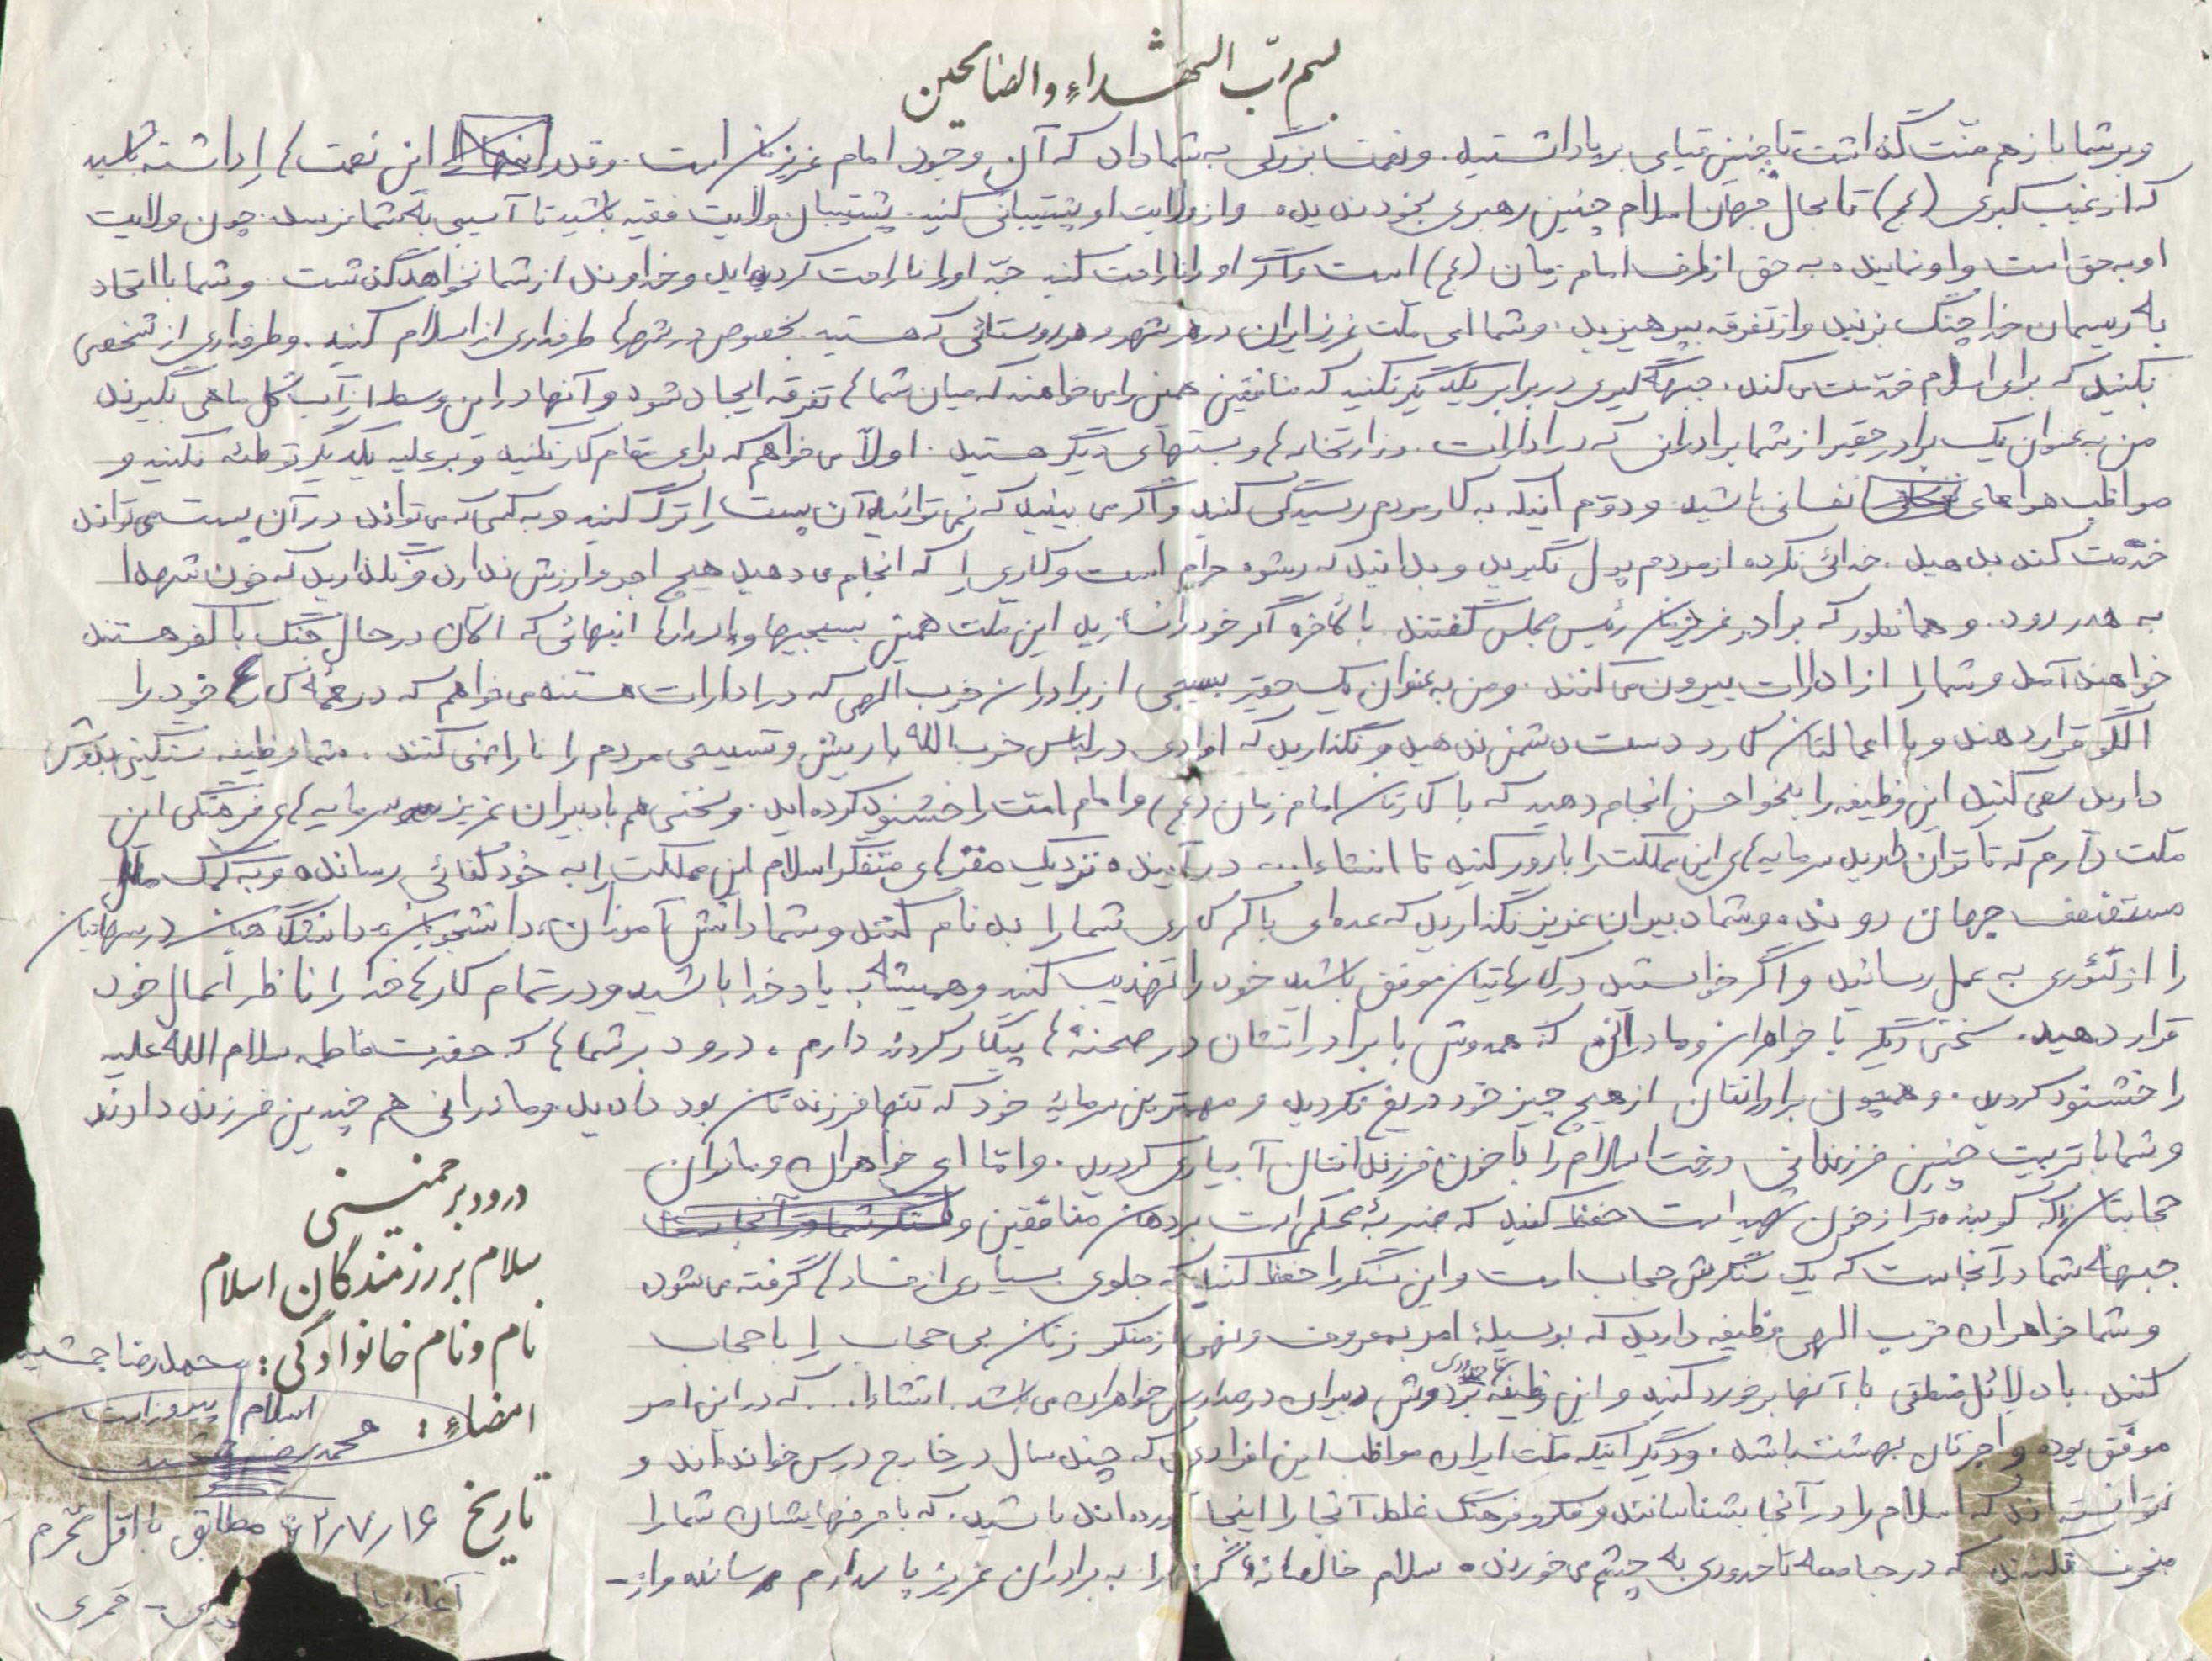 بسم ربّ الشهداء والصالحین
و بر شما باز هم منّت گذاشت تا چنین قیامی بر پا داشتید. و نعمت بزرگی به شما داد که آن وجود امام عزیزتان است. و قدر این نعمت را داشته باشید
که از غیبت کبری (عج) تا بحال جهان اسلام چنین رهبری بخود ندیده. و از ولایت او پشتیبانی کنید. پشتیبان ولایت فقیه باشید تا آسیبی به شما نرسد. چون ولایت
او به حق است و او نماینده به حق از طرف امام زمان (عج) است و اگر او را ناراحت کنید جدّ او را ناراحت کرده اید و خداوند از شما نخواهد گذشت. و شما با اتحاد
به ریسمان خدا چنگ بزنید و از تفرقه بپرهیزید. و شما ای ملت عزیز ایران در هر شهر و هر روستائی که هستید بخصوص در شهرها طرفداری از اسلام کنید. و طرفداری از شخصی
بکنید که برای اسلام خدمت می کند. جبهه گیری در برابر یکدیگر نکنید که منافقین همین را می خواهند که میان شما ها تفرقه ایجاد شود و آنها در این وسط از آب گل ماهی بگیرند
من به عنوان یک برادر حقیر از شما برادرانی که در ادارات. وزارتخانه ها و پستهای دیگر هستید. اولاً می خواهم که برای مقام کار نکنید و بر علیه یکدیگر توطئه نکنید و
مواظب هواهای نفسانی باشید و دوّم اینکه به کار مردم رسیدگی کنید و اگر می بینید که نمی توانید آن پست را ترک کنید و به کسی که می تواند در آن پست می تواند
خدمت کند بدهید. خدائی نکرده از مردم پول نگیرید و بدانید که رشوه حرام است و کاری را که انجام می دهید هیچ اجر و ارزش ندارد و نگذارید که خون شهدا
به هدر رود. و همانطور که برادر عزیزتان رئیس مجلس گفتند بالأخره اگر خود را نسازید این ملت همین بسیجیها و پاسدارها اینهائی که الان در حال جنگ با کفر هستند
خواهند آمد و شما را از ادارات بیرون می کنند. و من به عنوان یک حقیر بسیجی از برادران حزب الهی که در ادارات هستند می خواهم که در همه کارها خود را
الگو قرار دهند و با اعمالتان کارد دست دشمن ندهید و نگذارید که افرادی در لباس حزب الله با ریش و تسبیحی مردم را ناراضی کنند. شما وظیفه سنگینی بدوش
دارید سعی کنید این وظیفه را بنحو احسن انجام دهید که با کارتان امام زمان (عج) و امام امت را خشنود کرده اید. و سخنی هم با دبیران عزیز سرمایه های فرهنگی این
ملت دارم که تا توان دارید سرمایه های این مملکت را بارور کنید تا انشاءا... در آینده نزدیک مغزهای متفکر اسلام این مملکت را به خود کفائی رسانده و به کمک ملل
مستضعف جهان روند. و شما دبیران عزیز نگذارید که عده ای با کم کاری شما را بدنام کنند و شما دانش آموزان، دانشجویان، دانشگاهیان درسهایتان
را از تئوری به عمل رسانید و اگر خواستید در کارهایتان موفق باشید خود را تهذیب کنید و همیشه به یاد خدا باشید و در تمام کارها خدا را ناظر اعمال خود
قرار دهید. سخنی دیگر با خواهران و مادرانی که همدوش با برادرانشان در صحنه ها پیکار کردند دارم. درود بر شما ها که حضرت فاطمه سلام الله علیه
را خشنود کردید. و همچون برادرانتان از هیچ چیز خود دریغ نکردید و مهمترین سرمایه خود که تنها فرزندتان بود دادید. و مادرانی هم چندین فرزند دادند
و شما با تربیت چنین فرزندانی درخت اسلام را با خون فرزندانتان آبیاری کردید. و امّا ای خواهران و مادران
حجابتان را که کوبنده تر از خون شهید است حفظ کنید که ضربه محکمی است بر دهان منافقین و
جبهه شما در آنجاست که یک سنگرش حجاب است و این سنگر را حفظ کنید که جلوی بسیاری از فسادها گرفته می شود
و شما خواهران حزب الهی وظیفه دارید که بوسیله امر بمعروف و نهی از منکر زنان بی حجاب را با حجاب
کنید. با دلائل منطقی با آنها برخورد کنید و این وظیفه تا حدودی بر دوش دبیران در مدارس خواهران می باشد. انشاءا... که در این امر
موفق بوده و اجرتان بهشت باشد. و دیگر اینکه ملت ایران مواظب این افرادی که چند سال در خارج درس خوانده اند و
نتوانسته اند که اسلام را در آنجا بشناسانند و فکر و فرهنگ غلط آنجا را اینجا آورده اند باشید. که با حرفهایشان شما را
منحرف نکنند که در جامعه تا حدودی به چشم می خورند. سلام خالصانه و گرم را به برادران عزیز پاسدارم رسانده و از
درود بر خمینی
سلام بر رزمندگان اسلام
نام و نام خانوادگی: محمدرضا جمشید
امضاء: اسلام پیروز است
محمدرضا جمشید
تاریخ ۶۲/۷/۱۶ مطابق با اوّل محرم
آغاز سال قمری